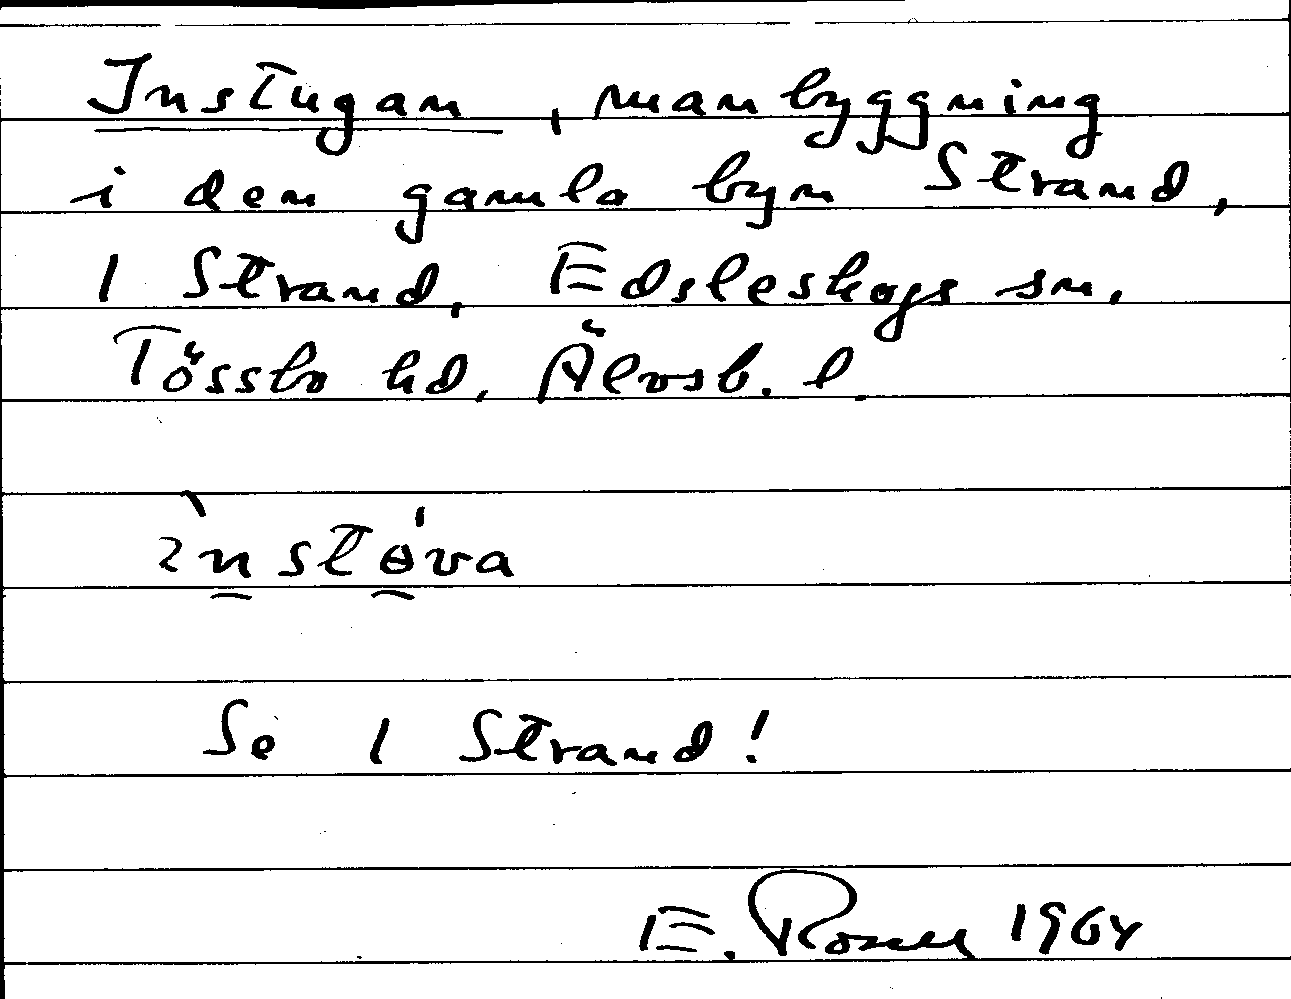 Instugan, manbyggning
i den gamla byn Strand,
1 Strand, Edsleskogs sn,
Tössbo hd, Älvsb. l.
ìnstɵ́va
Se 1 Strand!
E. Rosell 1964